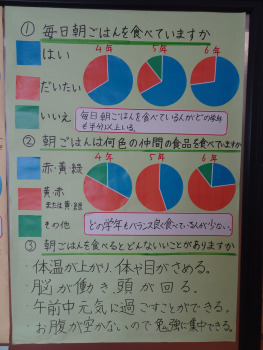 ① 毎日朝ごはんを食べていますか
はい
だいたい
いいえ
4年 5年 6年
毎日朝ごはんを食べている人がどの学年
も半分以上いる。
② 朝ごはんは何色の仲間の食品を食べていますか
赤・黄・緑
黄・赤
または黄・緑
その他
4年 5年 6年
どの学年もバランス良く食べている人が少ない。
③ 朝ごはんを食べるとどんないいことがありますか
・体温が上がり、体や目がさめる。
・脳が働き、頭が回る。
・午前中元気に過ごすことができる。
・お腹が空かないので勉強に集中できる。